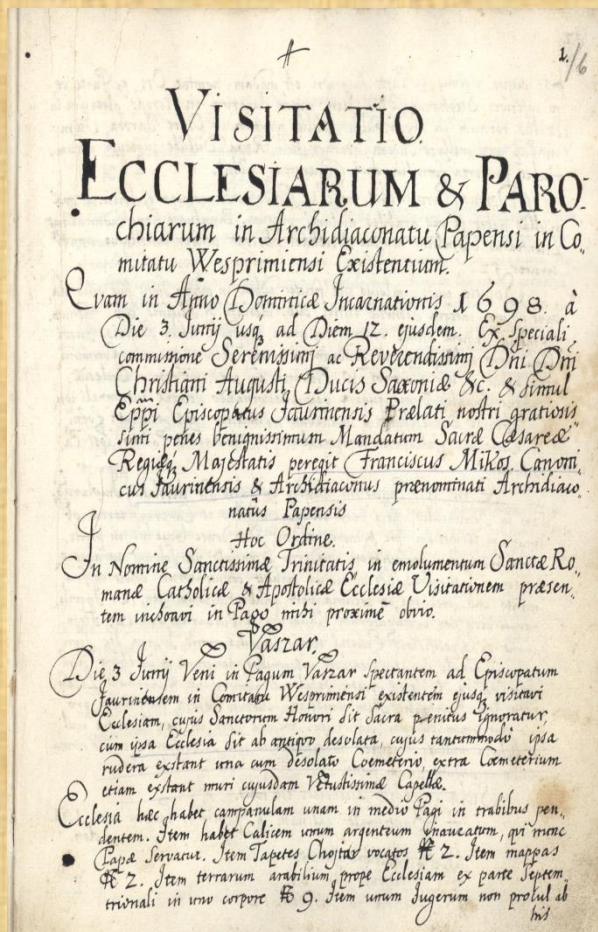 A
1./6
VISITATIO
ECCLESIARUM & PARO-
chiarum in Archidiaconatu Papensi in Co-
mitatu Wesprimiensi Existentium.
Qvam in Anno Dominicæ Incarnationis 1698. à
Die 3. Junij usq; ad Diem 12. ejusdem. Ex Speciali
commissione Serenissimi ac Reverendissimi Dñi Dñi
Christiani Augusti Ducis Saxoniæ &c. & simul
Eppi Episcopatus Jaurinensis Prælati nostri gratiosis-
simi penes benignissimum Mandatum Sacræ Cæsareæ
Regiæq; Majestatis peregit Franciscus Mikos Canoni-
cus Jaurinensis & Archidiaconus prænominati Archidiaco-
natûs Papensis
Hoc Ordine.
In Nomine Sanctissimæ Trinitatis, in emolumentum Sanctæ Ro-
manæ Catholicæ & Apostolicæ Ecclesiæ Visitationem præsen-
tem inchoavi in Pago mihi proximè obvio.
Vaszar.
Die 3 Junij Veni in Pagum Vaszar spectantem ad Episcopatum
Jaurinensem in Comitatu Wesprimensi existentem ejusq; visitavi
Ecclesiam, cujus Sanctorum Honori sit Sacra penitus ignoratur,
cum ipsa Ecclesia sit ab antiqvo desolata, cujus tantummodo ipsa
rudera exstant una cum desolato Coemeterio, extra Coemeterium
etiam exstant muri cujusdam Vetustissimæ Capellæ.
Ecclesia hæc habet campanulam unam in medio Pagi in trabibus pen-
dentem. Item habet Calicem unum argenteum inauratum, qui nunc
Papæ Servatur. Item Tapetes vocatos 2. Item mappas
2. Item terrarum arabilium prope Ecclesiam ex parte Septem-
trionali in uno corpore 9. Item unum Jugerum non procul ab
his